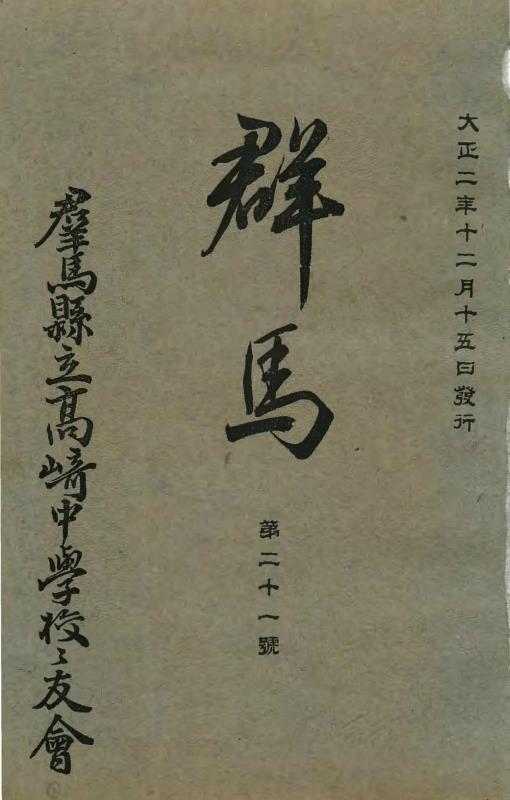 大正二年十二月十五日發行
群馬
第二十一號
羣馬縣立高崎中學校々友會